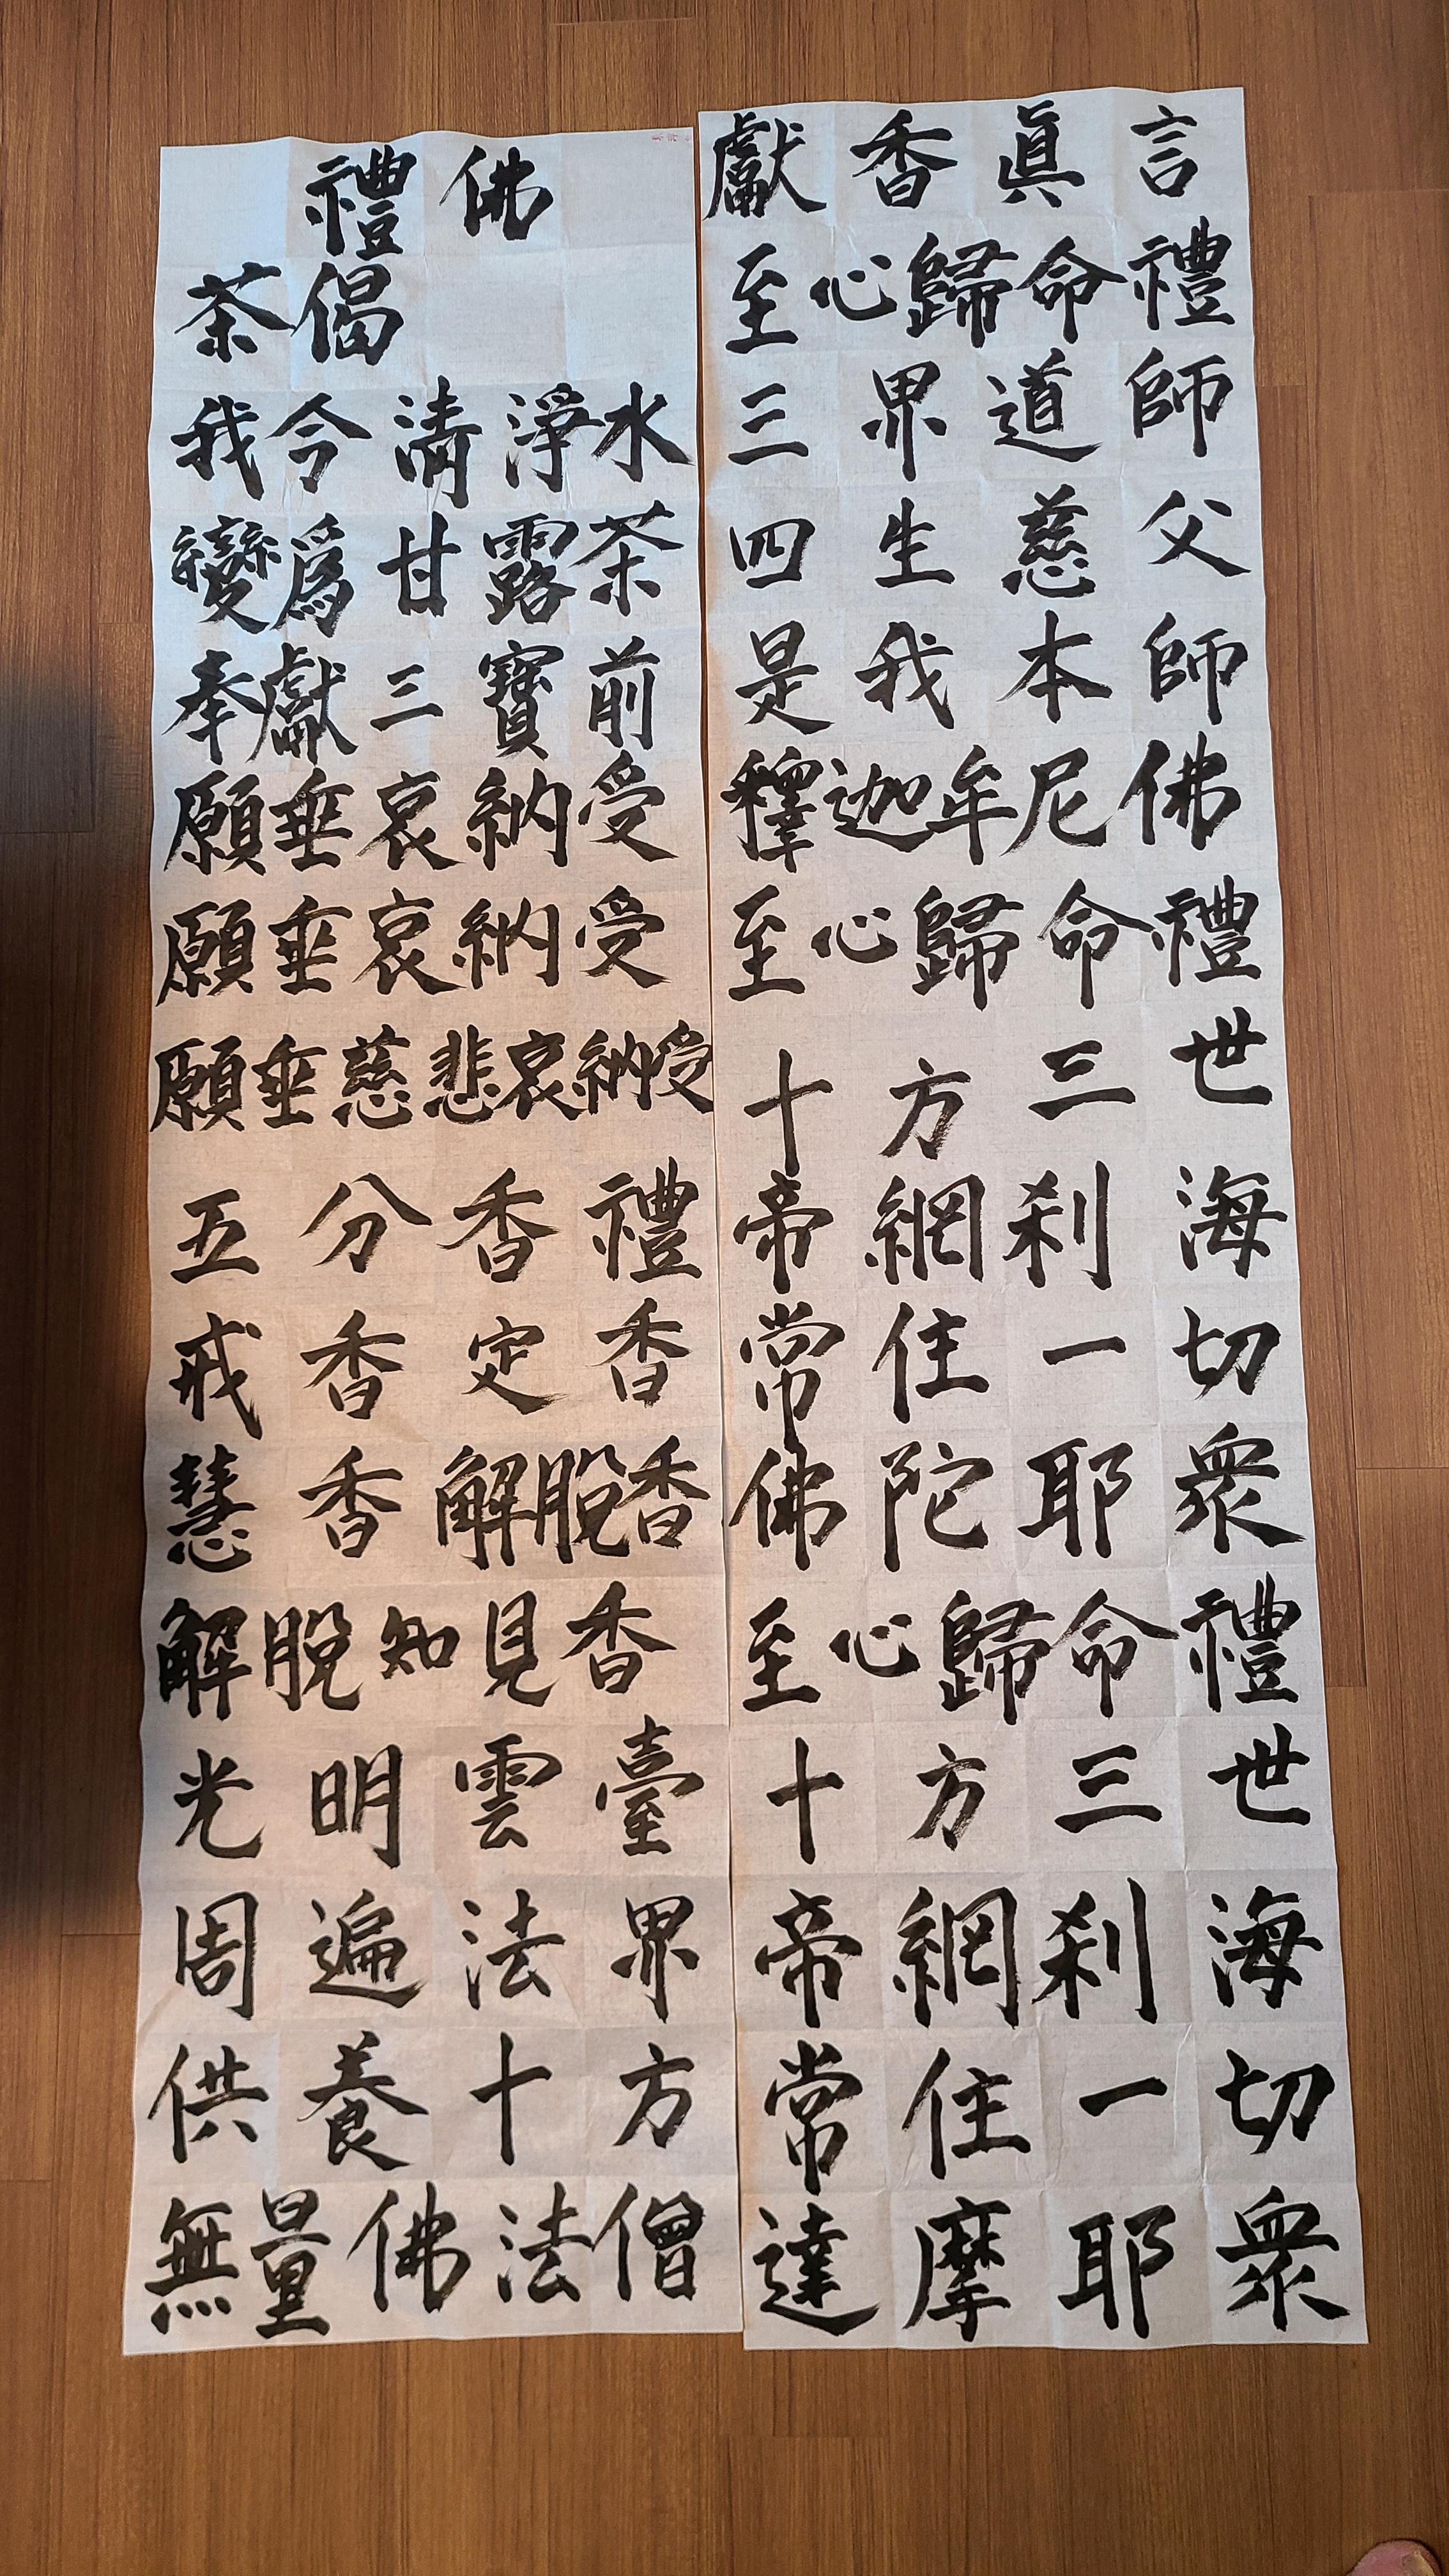 禮佛
茶偈
我今淸淨水
變爲甘露茶
奉獻三寶前
願垂哀納受
願垂哀納受
願垂慈悲哀納受
五分香禮
戒香定香
慧香解脫香
解脫知見香
光明雲臺
周遍法界
供養十方
無量佛法僧
獻香眞言
至心歸命禮
三界道師
四生慈父
是我本師
釋迦牟尼佛
至心歸命禮
十方三世
帝網刹海
常住一切
佛陀耶衆
至心歸命禮
十方三世
帝網刹海
常住一切
達摩耶衆